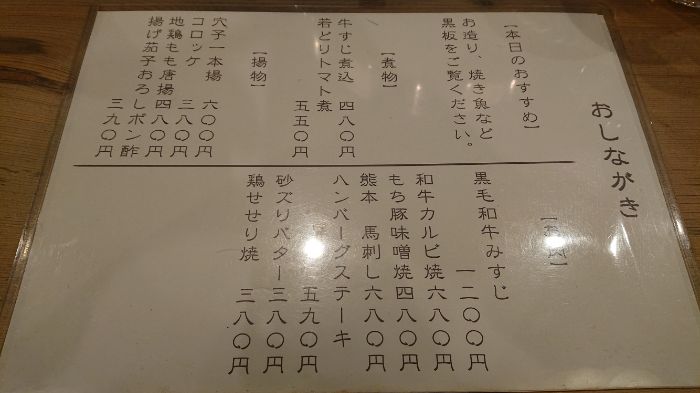 おしながき
【本日のおすすめ】
お造り、焼き魚など
黒板をご覧ください。
【煮物】
牛すじ煮込 四八〇円
若どりトマト煮
五五〇円
【揚物】
穴子一本揚 六〇〇円
コロッケ 三八〇円
地鶏もも唐揚 四八〇円
揚げ茄子おろしポン酢
三九〇円
【お肉】
黒毛和牛みすじ
一二〇〇円
和牛カルビ焼 六八〇円
もち豚味噌焼 四八〇円
熊本 馬刺し 六八〇円
ハンバーグステーキ
五九〇円
砂ズリバター 三八〇円
鶏せせり焼 三八〇円